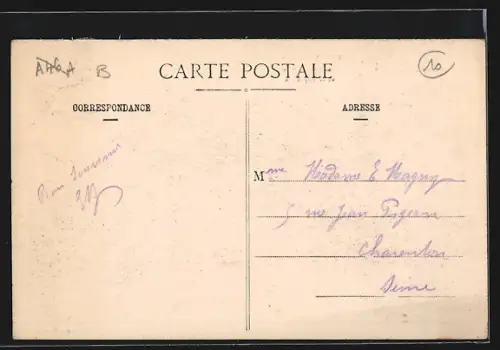 AAGA B
CARTE POSTALE
10
CORRESPONDANCE
ADRESSE
Bon Souvenir
Mme Madame E Magny
5 rue Jean Pigeon
Charenton
Seine